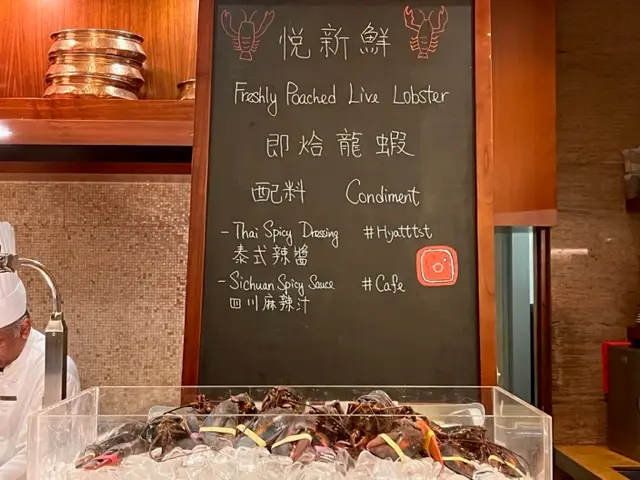 悦新鮮
Freshly Poached Live Lobster
即烚龍蝦
配料 Condiment
- Thai Spicy Dressing #Hyatttst
泰式辣醬
- Sichuan Spicy Sauce #Cafe
四川麻辣汁